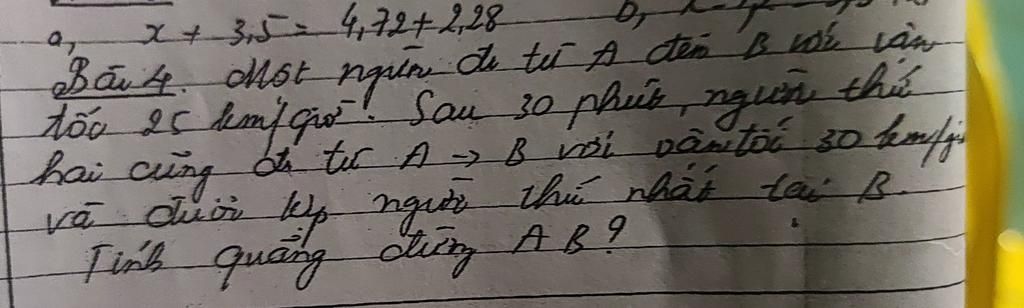 a, x + 3,5 = 4,72 + 2,28 b,
Bài 4. Một người đi từ A đến B với vận
tốc 25 km/giờ. Sau 30 phút, người thứ
hai cũng đi từ A → B với vận tốc 30 km/giờ
và đuổi kịp người thứ nhất tại B.
Tính quãng đường AB?